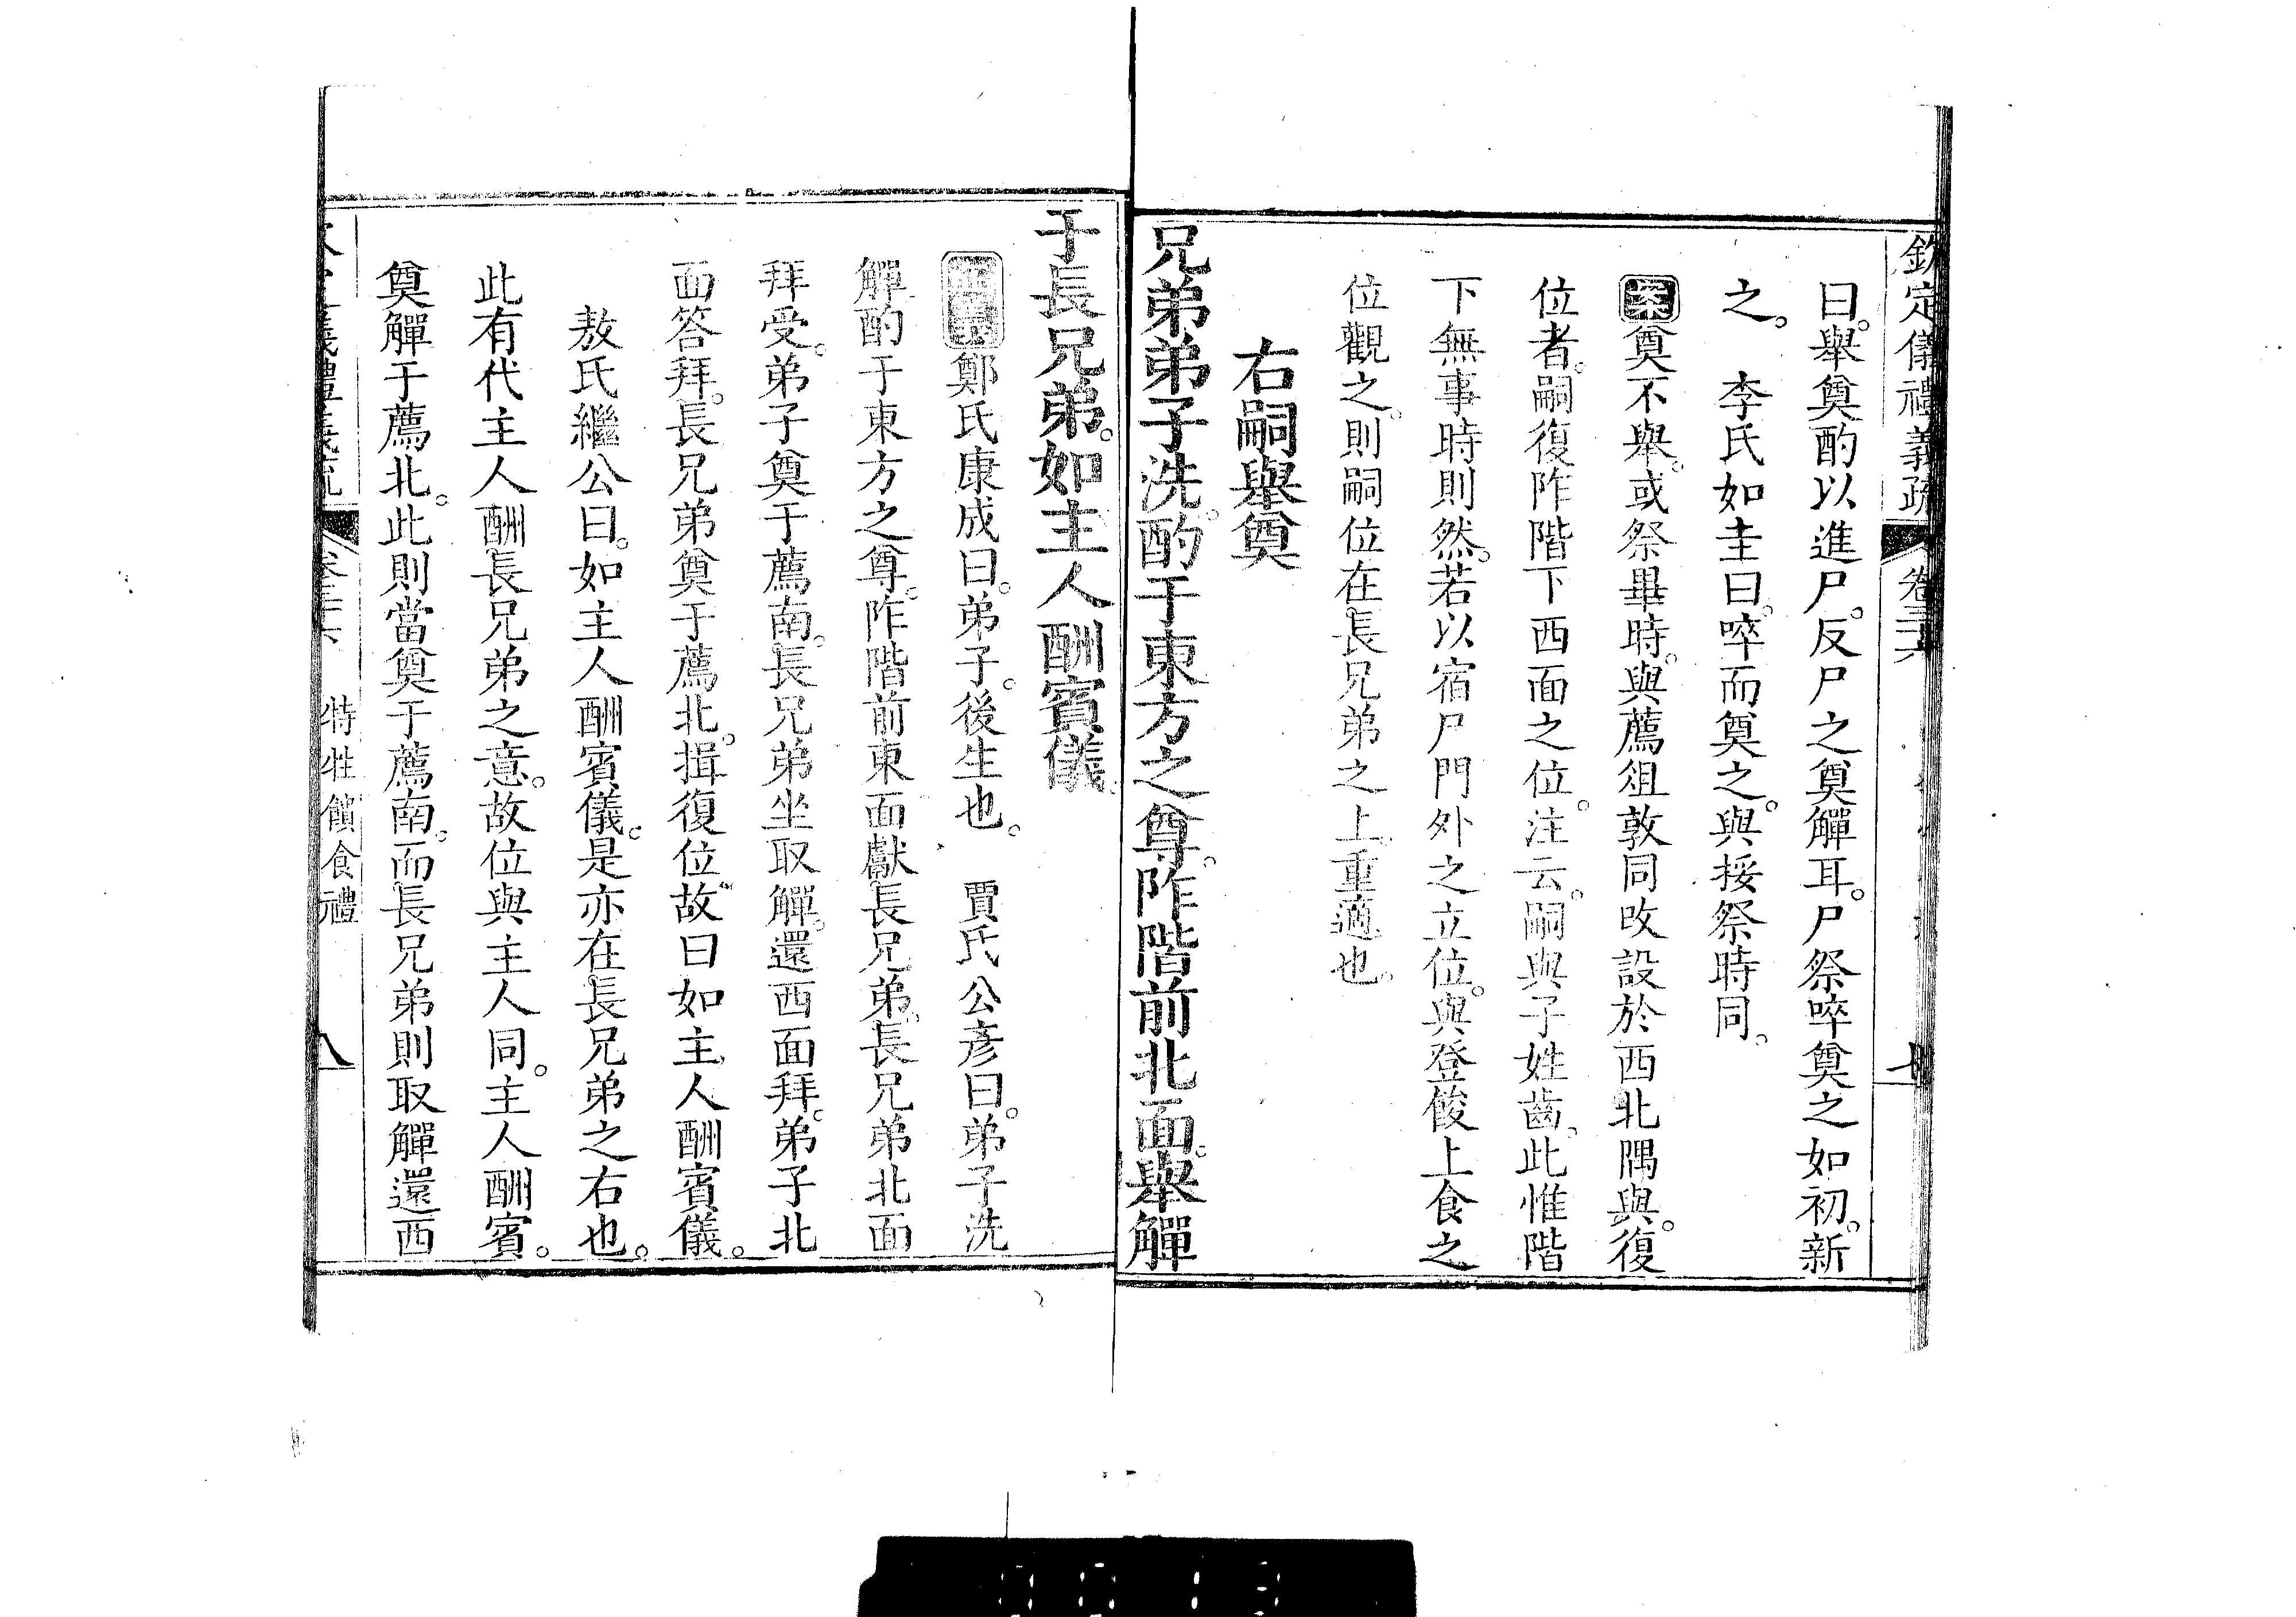 欽定儀禮義疏 卷三十六
曰。舉奠酌以進尸。反尸之奠觶耳。尸祭啐奠之如初。新
之。 李氏如圭曰。啐而奠之。與挼祭時同。
案奠不舉。或祭畢時。與薦俎敦同改設於西北隅與。復
位者。嗣復阼階下西面之位。注云。嗣與子姓齒。此惟階
下無事時則然。若以宿尸門外之立位。與登餕上食之
位觀之。則嗣位在長兄弟之上。重適也。
右嗣舉奠
兄弟弟子洗。酌于東方之尊。阼階前北面。舉觶
于長兄弟。如主人酬賓儀
正義鄭氏康成曰。弟子。後生也。 賈氏公彥曰。弟子洗
觶酌于東方之尊。阼階前東面獻長兄弟。長兄弟北面
拜受。弟子奠于薦南。長兄弟坐取觶。還西面拜。弟子北
面答拜。長兄弟奠于薦北。揖復位。故曰如主人酬賓儀。
敖氏繼公曰。如主人酬賓儀。是亦在長兄弟之右也。
此有代主人酬長兄弟之意。故位與主人同。主人酬賓。
奠觶于薦北。此則當奠于薦南。而長兄弟則取觶還西
儀禮義疏 卷三十六 特牲饋食禮 八